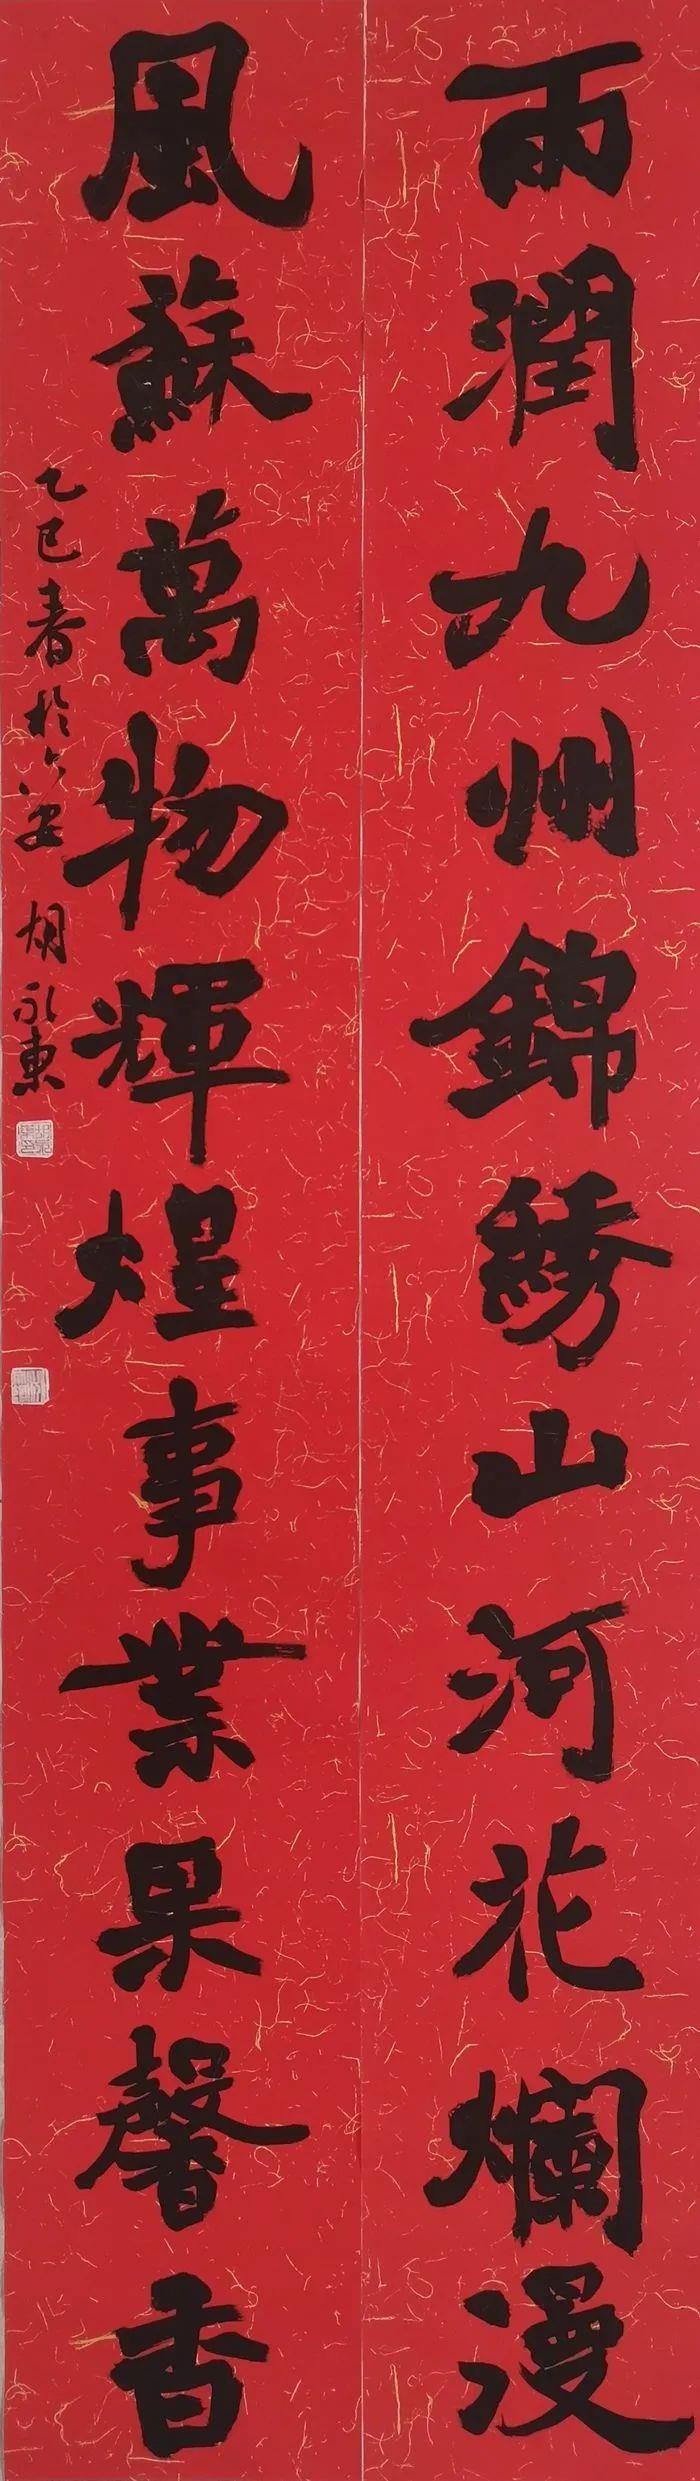 雨潤九州錦綉山河花爛漫
風蘇萬物輝煌事業果馨香
乙巳春於六安 胡永東